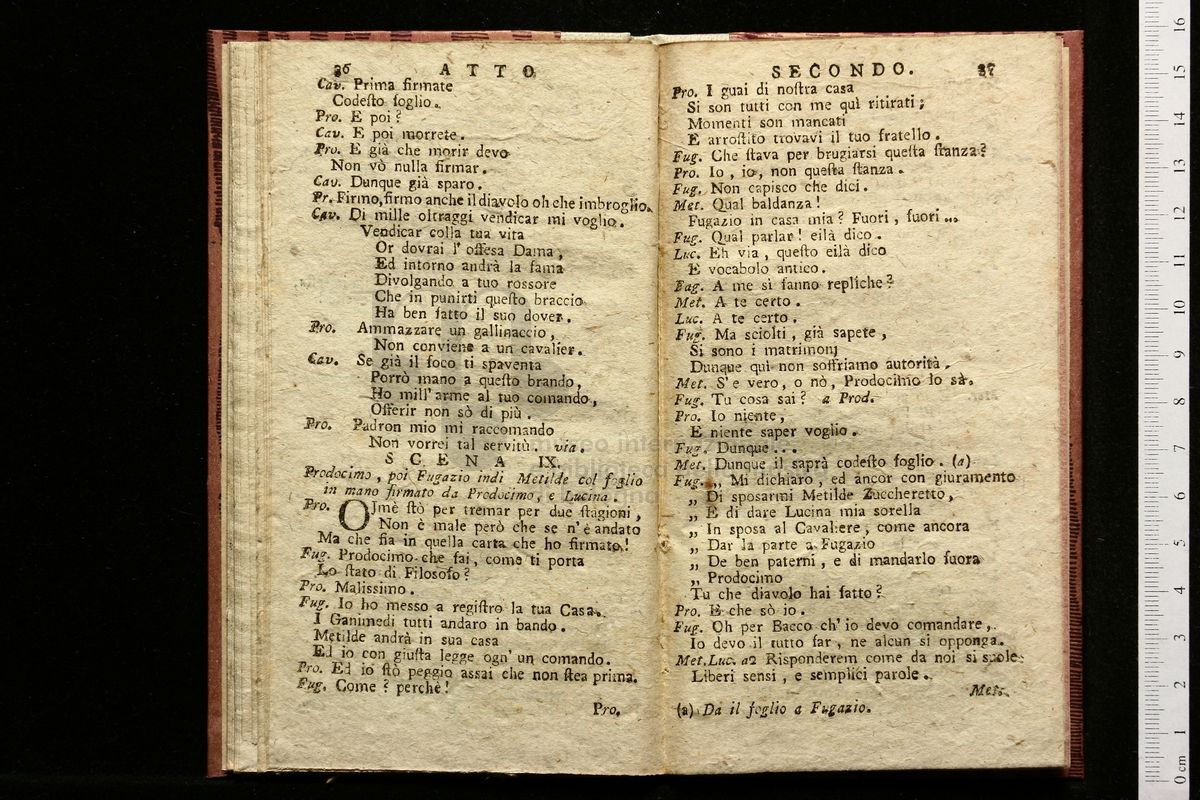 36 ATTO
Cav. Prima firmate
Codeſto foglio.
Pro. E poi?
Cav. E poi morrete.
Pro. E già che morir devo
Non vò nulla firmar.
Cav. Dunque già sparo.
Pr. Firmo, firmo anche il diavolo oh che imbroglio.
Cav. Di mille oltraggi vendicar mi voglio.
Vendicar colla tua vita
Or dovrai l' offesa Dama,
Ed intorno andrà la fama
Divolgando a tuo rossore
Che in punirti queſto braccio
Ha ben fatto il suo dover.
Pro. Ammazzare un gallinaccio,
Non conviene a un cavalier.
Cav. Se già il foco ti spaventa
Porrò mano a queſto brando,
Ho mill' arme al tuo comando,
Offerir non sò di più.
Pro. Padron mio mi raccomando
Non vorrei tal servitù. via.
SCENA IX.
Prodocimo, poi Fugazio indi Metilde col foglio
in mano firmato da Prodocimo, e Lucina.
Pro. OJmè ſtò per tremar per due ſtagioni,
Non è male però che se n' è andato
Ma che fia in quella carta che ho firmato!
Fug. Prodocimo che fai, come ti porta
Lo ſtato di Filosofo?
Pro. Malissimo.
Fug. Io ho messo a regiſtro la tua Casa.
I Ganimedi tutti andaro in bando.
Metilde andrà in sua casa
Ed io con giuſta legge ogn' un comando.
Pro. Ed io ſtò peggio assai che non ſtea prima.
Fug. Come? perchè!
Pro.
SECONDO. 37
Pro. I guai di noſtra casa
Si son tutti con me quì ritirati;
Momenti son mancati
E arroſtito trovavi il tuo fratello.
Fug. Che ſtava per brugiarsi queſta ſtanza?
Pro. Io, io, non queſta ſtanza.
Fug. Non capisco che dici.
Met. Qual baldanza!
Fugazio in casa mia? Fuori, fuori...
Fug. Qual parlar! eilà dico.
Luc. Eh via, queſto eilà dico
E vocabolo antico.
Fag. A me si fanno repliche?
Met. A te certo.
Luc. A te certo.
Fug. Ma sciolti, già sapete,
Si sono i matrimonj
Dunque quì non soffriamo autorità.
Met. S' e vero, o nò, Prodocimo lo sà.
Fug. Tu cosa sai? a Prod.
Pro. Io niente,
E niente saper voglio.
Fug. Dunque...
Met. Dunque il saprà codeſto foglio. (a)
Fug. „ Mi dichiaro, ed ancor con giuramento
„ Di sposarmi Metilde Zuccheretto,
„ E di dare Lucina mia sorella
„ In sposa al Cavaliere, come ancora
„ Dar la parte a Fugazio
„ De ben paterni, e di mandarlo fuora
„ Prodocimo
Tu che diavolo hai fatto?
Pro. E che sò io.
Fug. Oh per Bacco ch' io devo comandare,
Io devo il tutto far, ne alcun si opponga.
Met. Luc. a2 Risponderem come da noi si suole
Liberi sensi, e semplici parole.
Met.
(a) Da il foglio a Fugazio.
16
15
14
13
12
11
10
9
8
7
6
5
4
3
2
1
0 cm